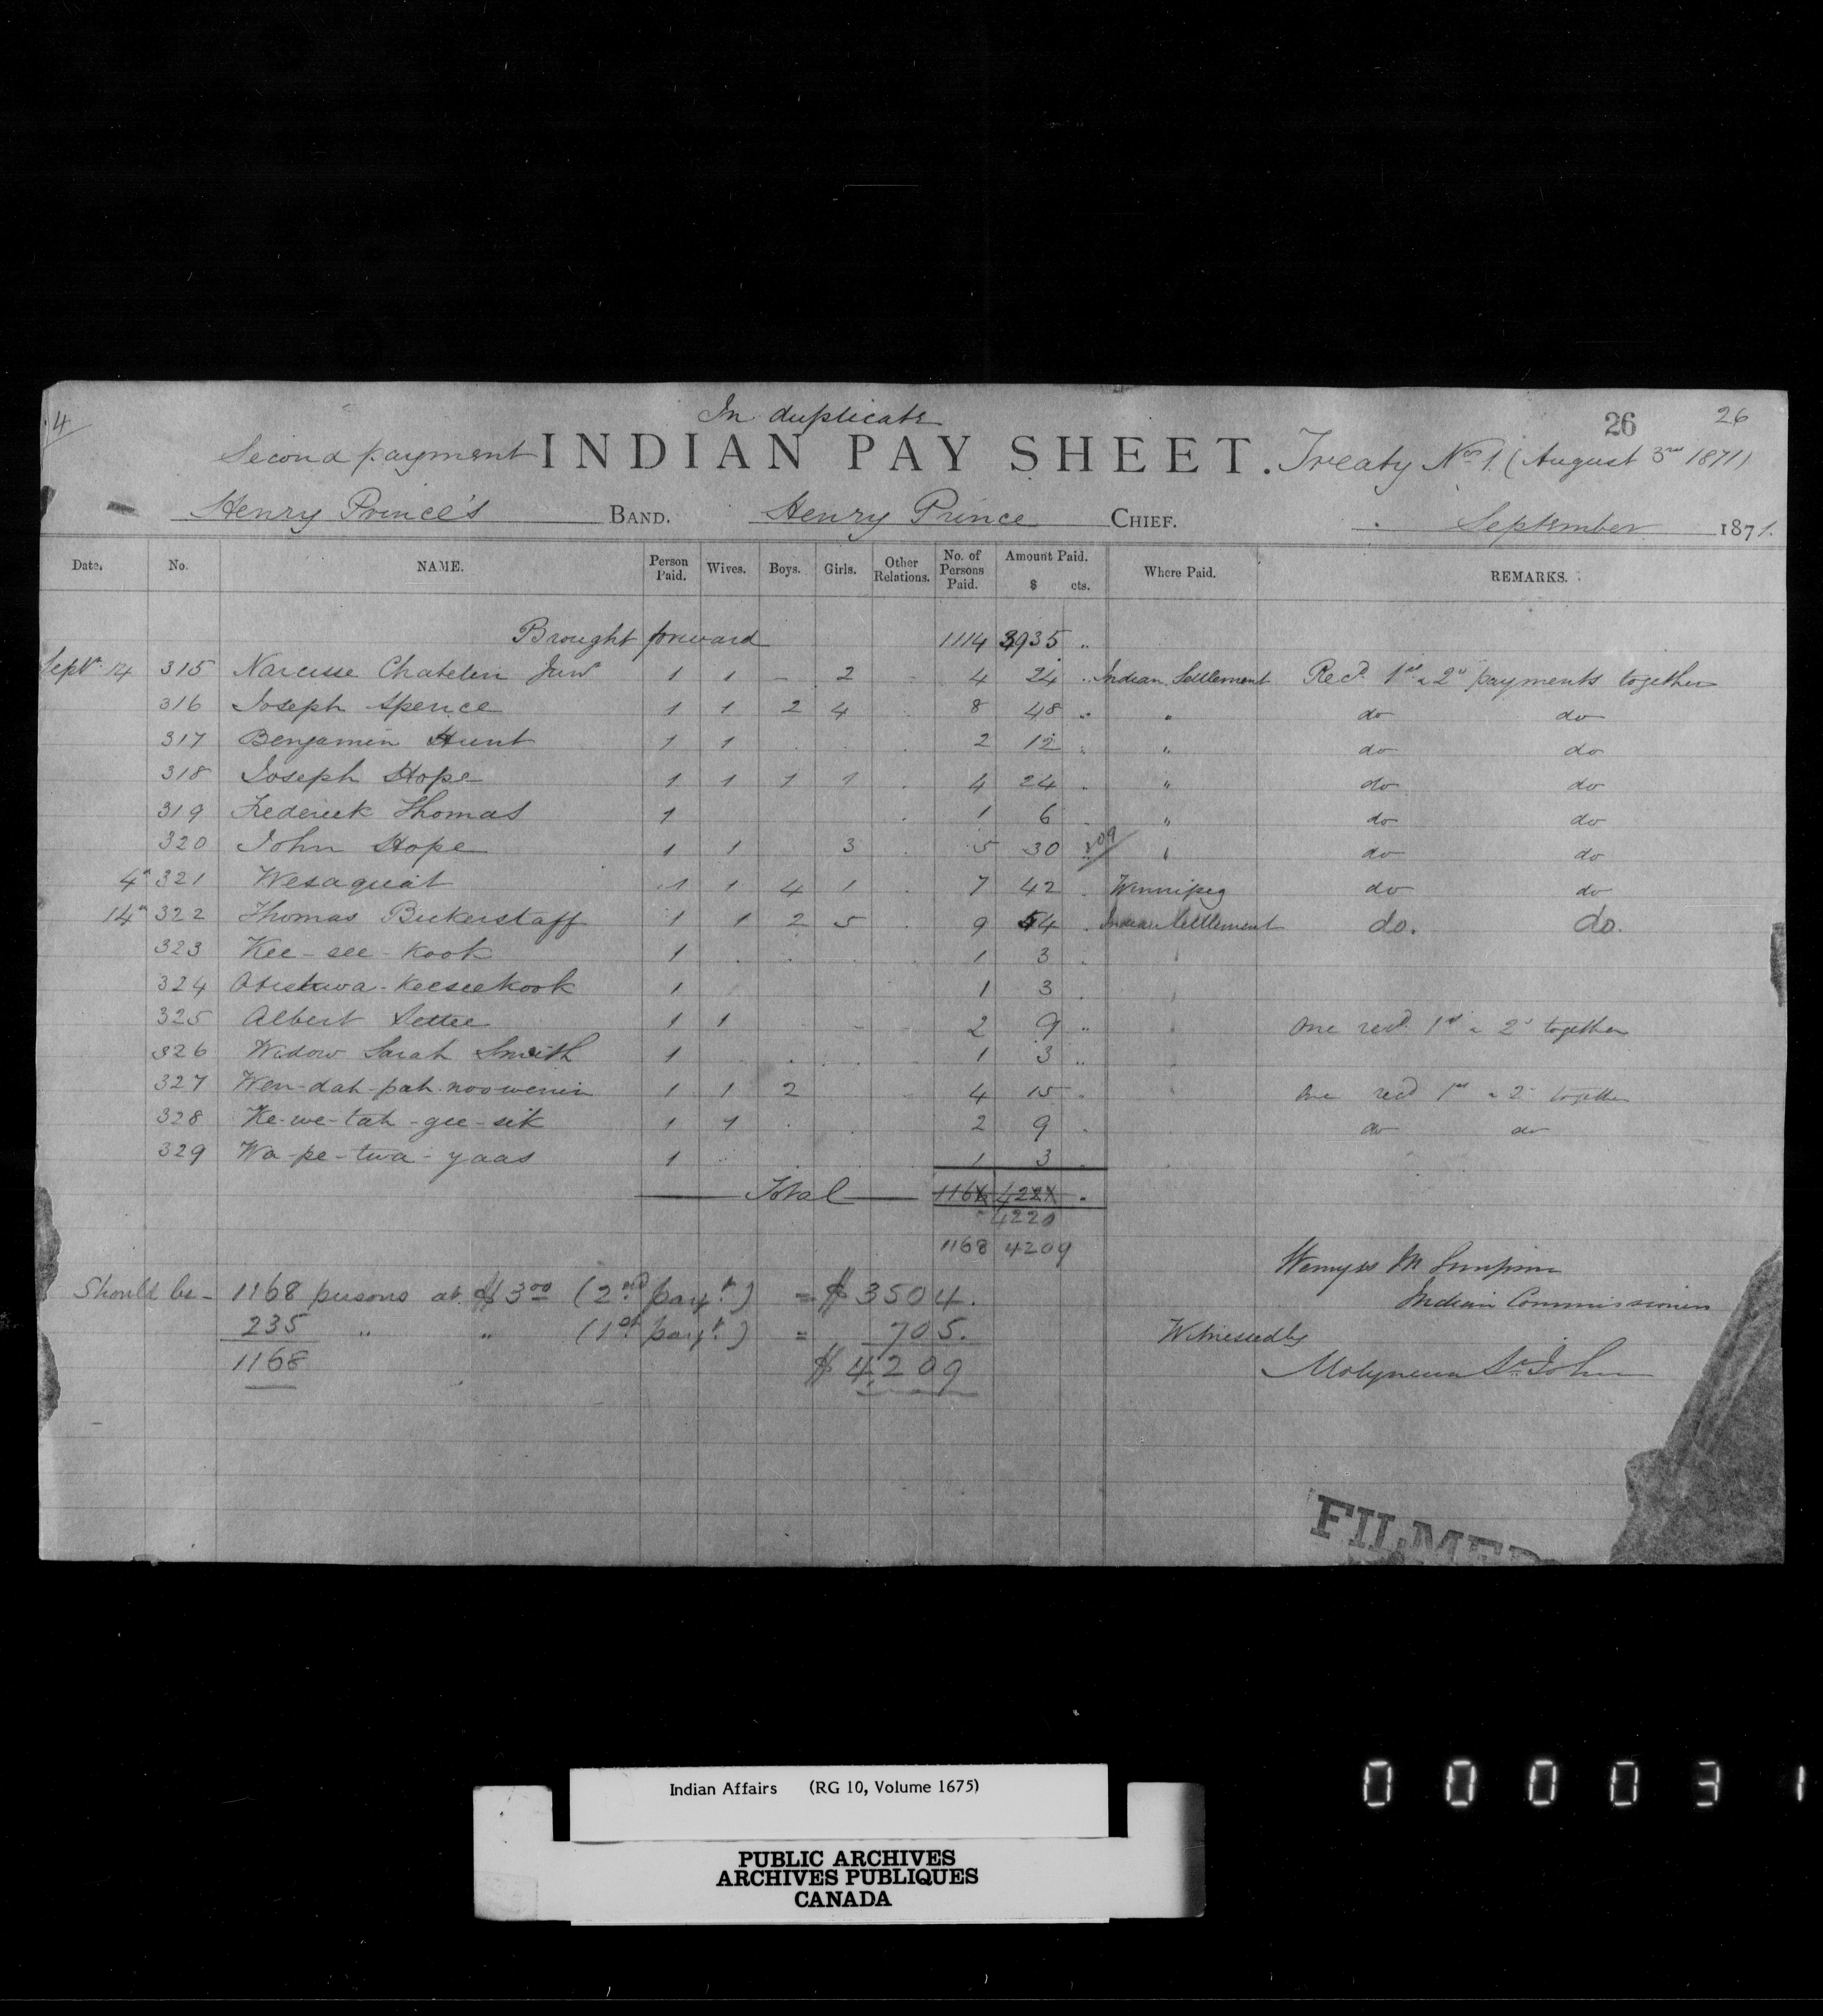 In duplicate
4
26
26
Second payment INDIAN PAY SHEET. Treaty No 1. (August 3rd 1871)
Henry Prince's BAND. Henry Prince CHIEF. September 1871.
Date. No. NAME. Person Paid. Wives. Boys. Girls. Other Relations. No. of Persons Paid. Amount Paid. $ cts. Where Paid. REMARKS.
Brought forward 1114 3935 "
Sept. 14 315 Narcisse Chatelen Junr 1 1 - 2 4 24 Indian Settlement Recd. 1st & 2d payments together
316 Joseph Spence 1 1 2 4 8 48 " " do do
317 Benjamin Hunt 1 1 2 12 " " do do
318 Joseph Hope 1 1 1 1 4 24 " do do
319 Frederick Thomas 1 1 6 " do do
320 John Hope 1 1 3 5 30 " do do
4th 321 Wesaquat 1 1 4 1 7 42 Winnipeg do do
14th 322 Thomas Bickerstaff 1 1 2 5 9 54 Indian Settlement do. do.
323 Kee-see-kook 1 1 3
324 Keeseekook 1 1 3
325 Albert Settee 1 1 2 9 " One recd. 1st & 2d together
326 Widow Sarah Smith 1 1 3 "
327 Wen-dah-pah-noowenin 1 1 2 4 15 One recd 1st & 2d together
328 Ke-we-tah-gee-sik 1 1 2 9 do do
329 Wa-pe-twa-yaas 1 1 3
Total
4220
1168 4209
Should be - 1168 persons at $3.00 (2nd payt.) = $3504.
235 " " (1st payt.) = 705.
1168 $4209
Wemyss M Simpson
Indian Commissioner
Witnessed by
Molyneux St. John
FILMED
Indian Affairs (RG 10, Volume 1675)
PUBLIC ARCHIVES
ARCHIVES PUBLIQUES
CANADA
0 0 0 0 3 1